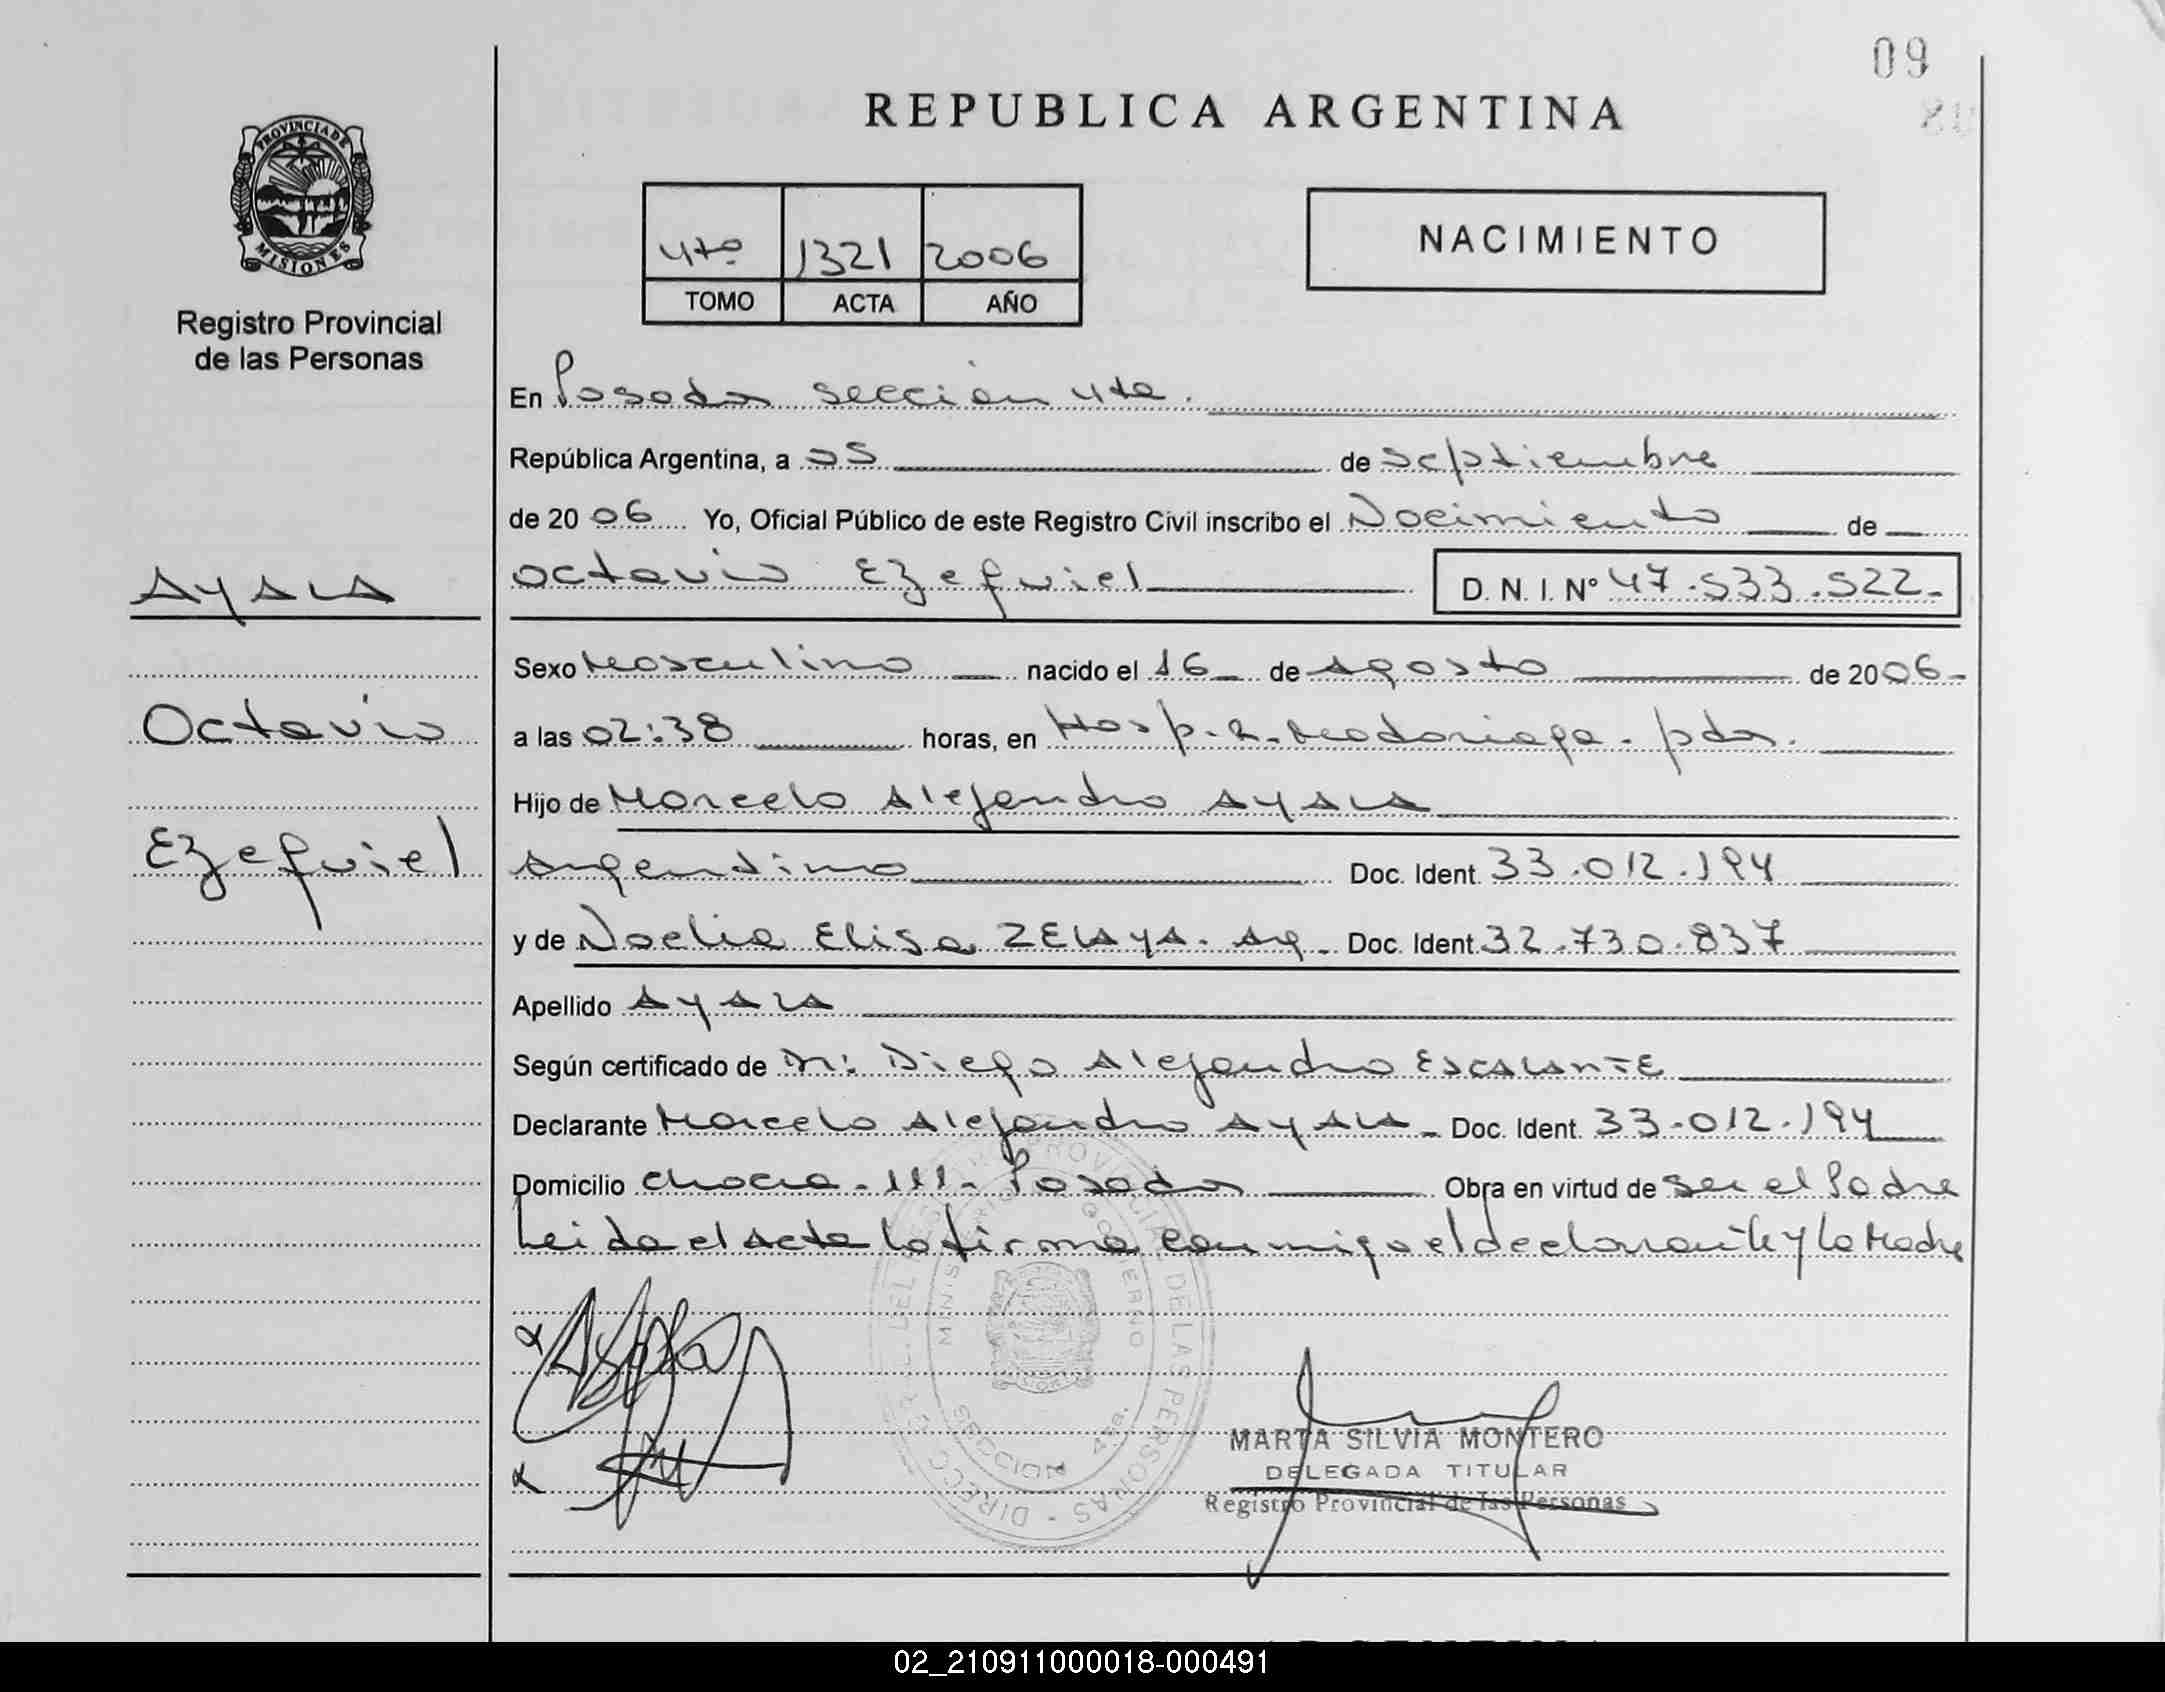 09
REPUBLICA ARGENTINA
PROVINCIA DE
MISIONES
Registro Provincial
de las Personas
4to 1321 2006
TOMO ACTA AÑO
NACIMIENTO
En Posadas sección 4ta.
República Argentina, a 05 de septiembre
de 2006 Yo, Oficial Público de este Registro Civil inscribo el Nacimiento de
AYALA
Octavio Ezequiel D. N. I. N° 47.533.522-
Sexo Masculino nacido el 16 de Agosto de 2006-
Octavio
a las 02:38 horas, en Hosp. R. Madariaga. pdas.
Hijo de Marcelo Alejandro AYALA
Ezequiel
Argentino Doc. Ident. 33.012.194
y de Noelia Elisa ZELAYA. Arg Doc. Ident. 32.730.837
Apellido AYALA
Según certificado de Dr: Diego Alejandro ESCALANTE
Declarante Marcelo Alejandro AYALA - Doc. Ident. 33.012.194
Domicilio chacra - 111 - Posadas Obra en virtud de ser el Padre
Leida el Acta la firma conmigo el declarante y la Madre
MINISTERIO GOBIERNO
DEL REGISTRO PROVINCIAL DE LAS PERSONAS
SECCION 4ta.
MARTA SILVIA MONTERO
DELEGADA TITULAR
Registro Provincial de las Personas
02_210911000018-000491